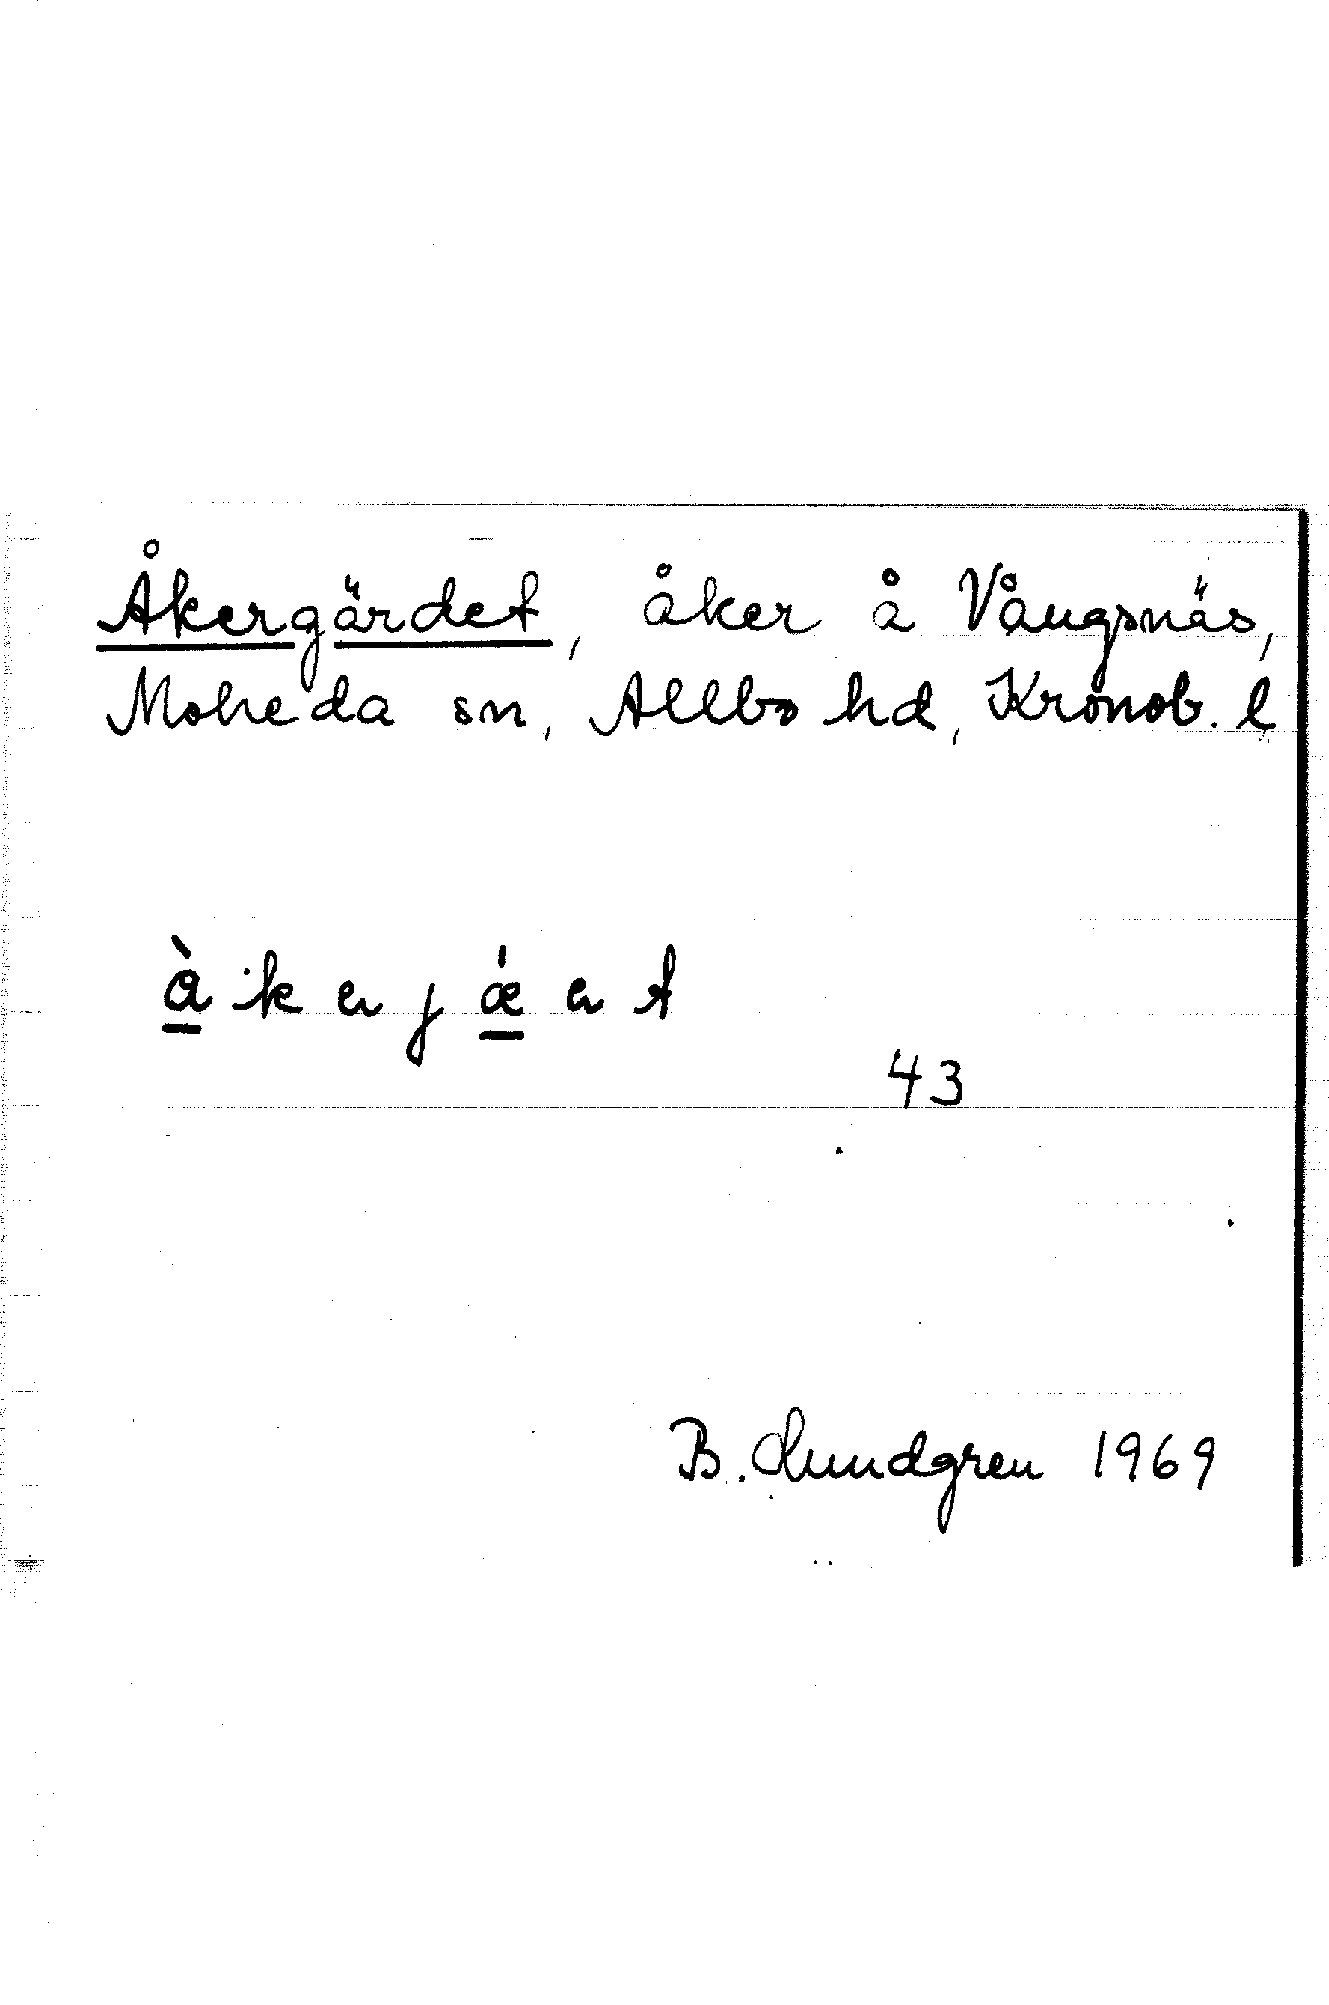 Åkergärdet, åker å Vångsnäs,
Moheda sn, Allbo hd, Kronob. l
43
B. Lundgren 1969